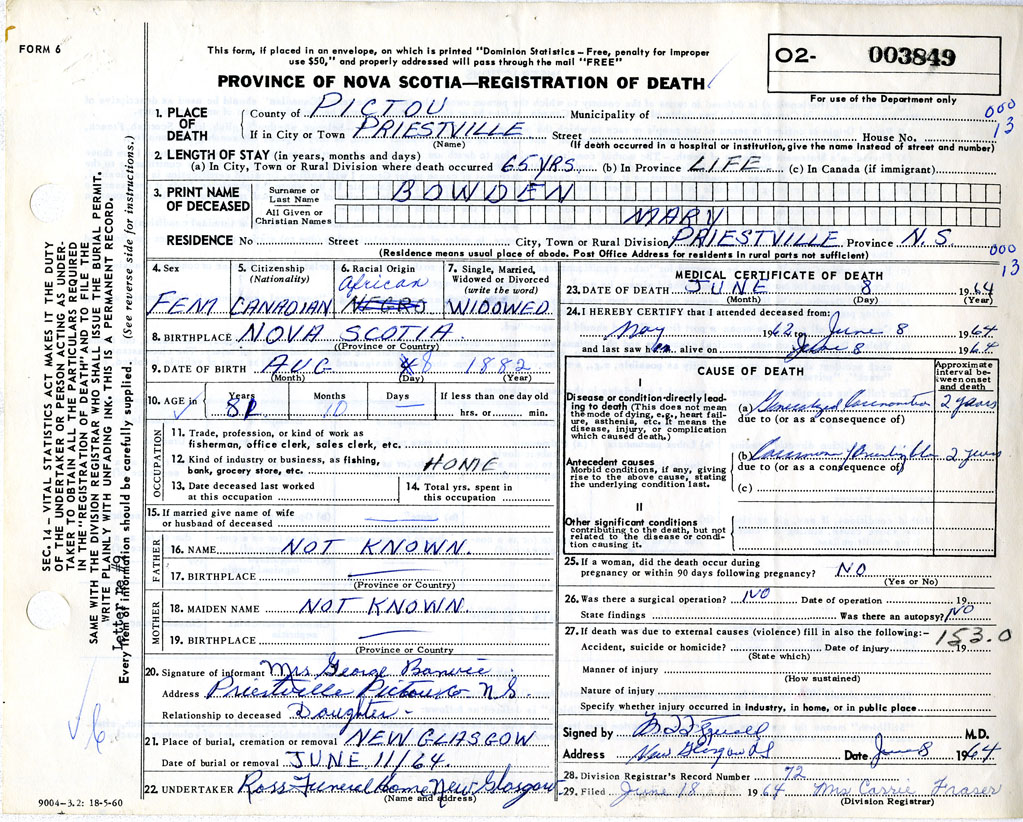 FORM 6
This form, if placed in an envelope, on which is printed "Dominion Statistics – Free, penalty for improper
use $50," and properly addressed will pass through the mail "FREE"
PROVINCE OF NOVA SCOTIA—REGISTRATION OF DEATH
02- 003849
For use of the Department only
SEC. 14 – VITAL STATISTICS ACT MAKES IT THE DUTY
OF THE UNDERTAKER OR PERSON ACTING AS UNDER-
TAKER TO OBTAIN ALL THE PARTICULARS REQUIRED
IN THE "REGISTRATION OF DEATH" AND TO FILE THE
SAME WITH THE DIVISION REGISTRAR WHO SHALL ISSUE THE BURIAL PERMIT.
WRITE PLAINLY WITH UNFADING INK. THIS IS A PERMANENT RECORD.
Every item of information should be carefully supplied. (See reverse side for instructions.)
Letter
1. PLACE OF DEATH
County of PICTOU Municipality of
000
13
If in City or Town PRIESTVILLE Street House No.
(Name) (If death occurred in a hospital or institution, give the name instead of street and number)
2. LENGTH OF STAY (in years, months and days)
(a) In City, Town or Rural Division where death occurred 65 YRS. (b) In Province LIFE (c) In Canada (if immigrant)
3. PRINT NAME OF DECEASED
Surname or Last Name BOWDEN
All Given or Christian Names MARY
RESIDENCE No Street City, Town or Rural Division PRIESTVILLE Province N.S.
(Residence means usual place of abode. Post Office Address for residents in rural parts not sufficient)
000
13
4. Sex
FEM
5. Citizenship
(Nationality)
CANADIAN
6. Racial Origin
African
NEGRO
7. Single, Married,
Widowed or Divorced
(write the word)
WIDOWED
8. BIRTHPLACE NOVA SCOTIA
(Province or Country)
9. DATE OF BIRTH AUG 8 1882
(Month) (Day) (Year)
10. AGE in Years Months Days If less than one day old
10 — hrs. or min.
OCCUPATION
11. Trade, profession, or kind of work as
fisherman, office clerk, sales clerk, etc.
12. Kind of industry or business, as fishing,
bank, grocery store, etc. HOME
13. Date deceased last worked
at this occupation
14. Total yrs. spent in
this occupation
15. If married give name of wife
or husband of deceased —
FATHER
16. NAME NOT KNOWN.
17. BIRTHPLACE —
(Province or Country)
MOTHER
18. MAIDEN NAME NOT KNOWN
19. BIRTHPLACE —
(Province or Country
20. Signature of informant Mrs George
Address Priestville Pictou Co N.S.
Relationship to deceased Daughter
21. Place of burial, cremation or removal NEW GLASGOW
Date of burial or removal JUNE 11/64.
22. UNDERTAKER Ross Funeral Home, New Glasgow
(Name and address)
9004–3.2: 18-5-60
MEDICAL CERTIFICATE OF DEATH
23. DATE OF DEATH JUNE 8 1964
(Month) (Day) (Year)
24. I HEREBY CERTIFY that I attended deceased from:
May 1962 to June 8 1964
and last saw her alive on June 8 1964.
CAUSE OF DEATH
Approximate
interval be-
tween onset
and death
I
Disease or condition-directly lead-
ing to death (This does not mean
the mode of dying, e.g., heart fail-
ure, asthenia, etc. It means the
disease, injury, or complication
which caused death.)
(a) Generalized 2 years
due to (or as a consequence of)
Antecedent causes
Morbid conditions, if any, giving
rise to the above cause, stating
the underlying condition last.
(b) 2 years
due to (or as a consequence of)
(c)
II
Other significant conditions
contributing to the death, but not
related to the disease or condi-
tion causing it.
25. If a woman, did the death occur during
pregnancy or within 90 days following pregnancy? NO
(Yes or No)
26. Was there a surgical operation? NO Date of operation 19
State findings Was there an autopsy? NO
27. If death was due to external causes (violence) fill in also the following:–
153.0
Accident, suicide or homicide? Date of injury 19
(State which)
Manner of injury
(How sustained)
Nature of injury
Specify whether injury occurred in industry, in home, or in public place
Signed by M.D.
Address New Glasgow NS Date June 8 1964
28. Division Registrar's Record Number 72
29. Filed June 18 1964 Mrs Carrie Fraser
(Division Registrar)